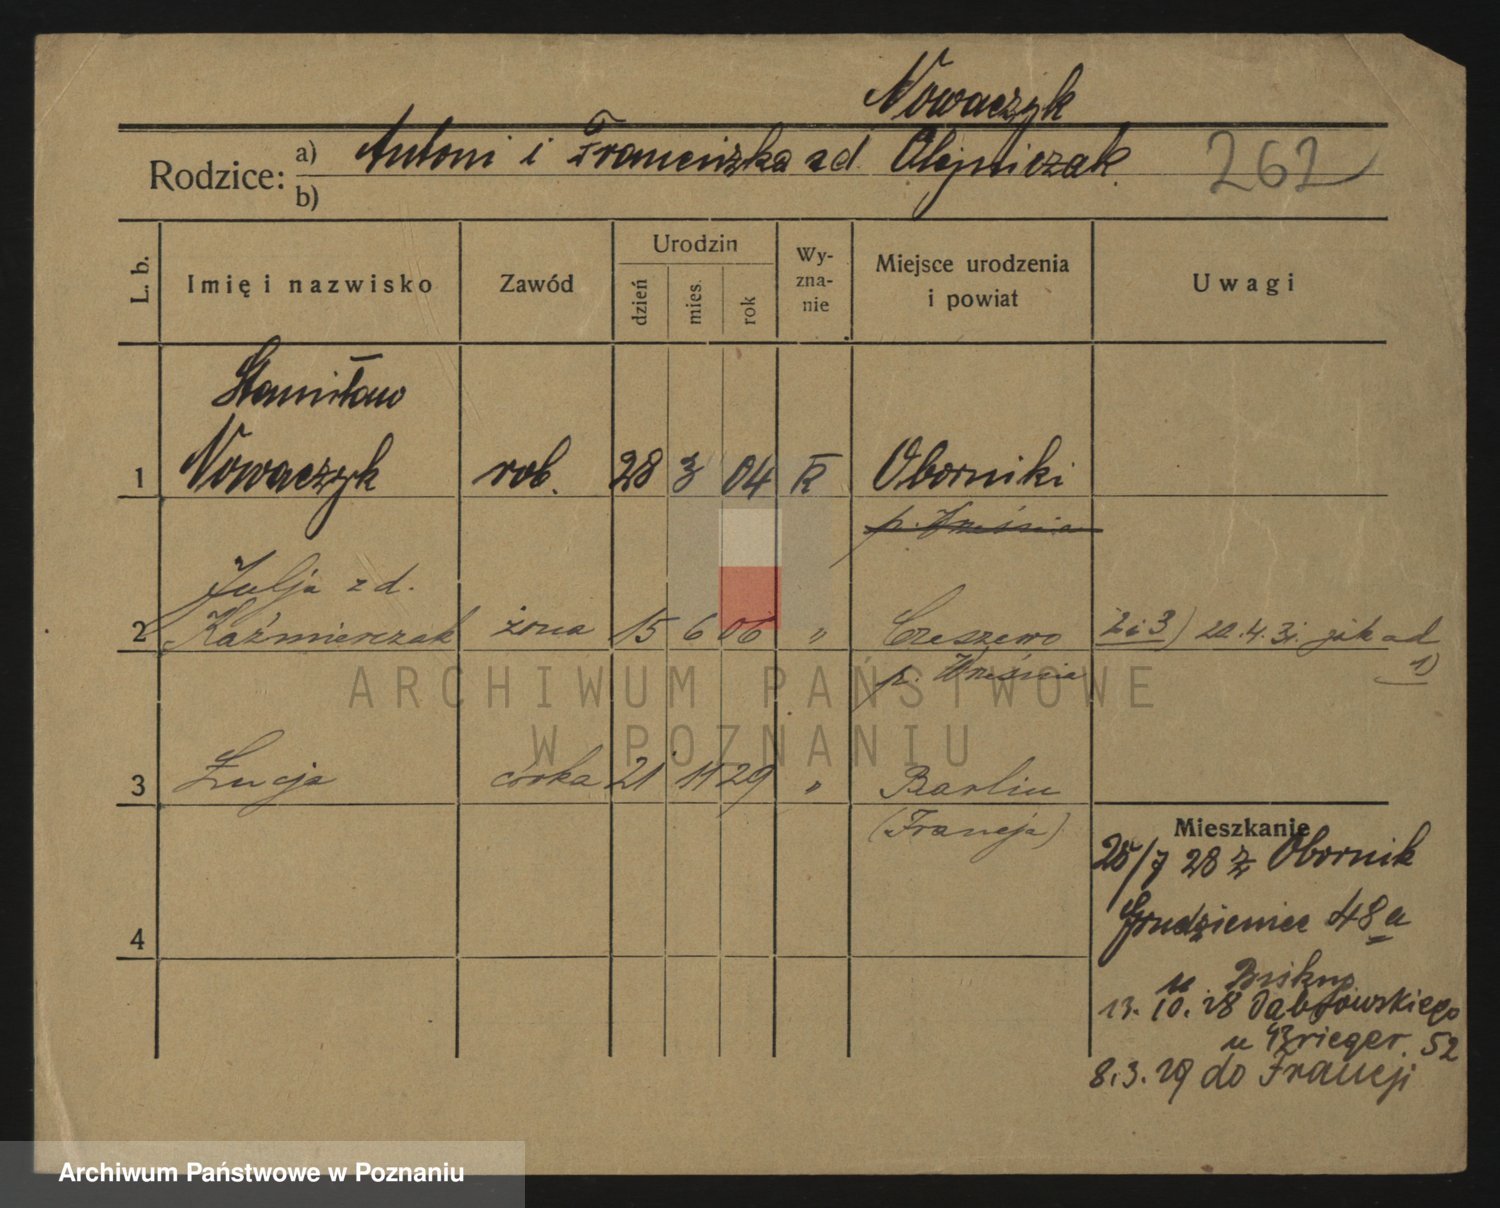 Nowaczyk
Rodzice: a) Antoni i Franciszka zd. Olejniczak 262
b)
L. b. Imię i nazwisko Zawód Urodzin dzień mies. rok Wy-zna-nie Miejsce urodzenia i powiat Uwagi
Stanisław
1 Nowaczyk rob. 28 3 04 K Oborniki
p. Września
Julja zd.
2 Kaźmierczak żona 15 6 06 " Czeszewo 2 i 3) 20.4.31. jak ad
p. Września 1)
ARCHIWUM PAŃSTWOWE
W POZNANIU
3 Łucja córka 21 11 29 " Barlin
(Francja)
Mieszkanie
28 z Obornik
4 Grudzieniec 48a
u
13.10.28 Dąbrowskiego
u Krieger 52
8.3.29 do Francji
Archiwum Państwowe w Poznaniu